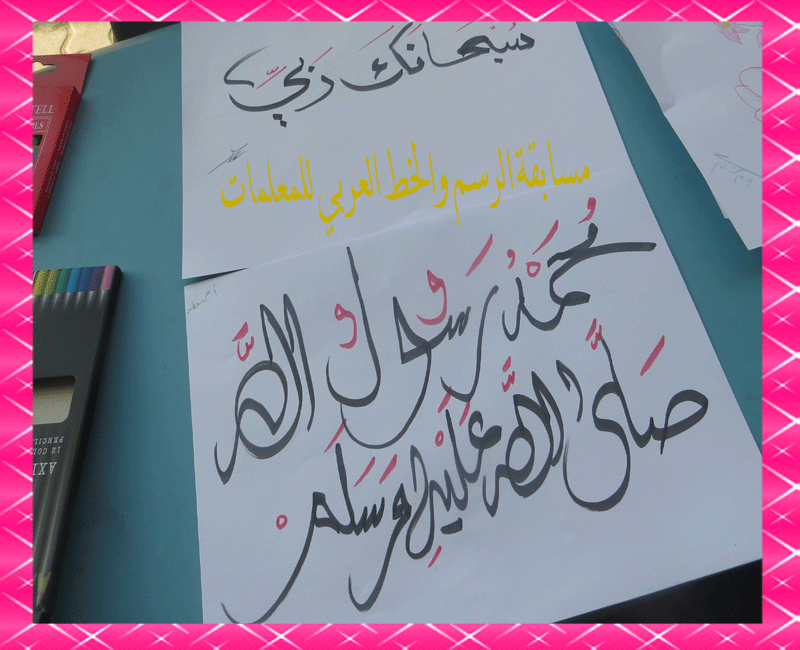 سُبْحَانَكَ رَبِّي
مسابقة الرسم والخط العربي للمعلمات
مُحَمَّدٌ رَسُولُ اللَّه
صَلَّى اللَّه عَلَيْهِ وَسَلَّمْ